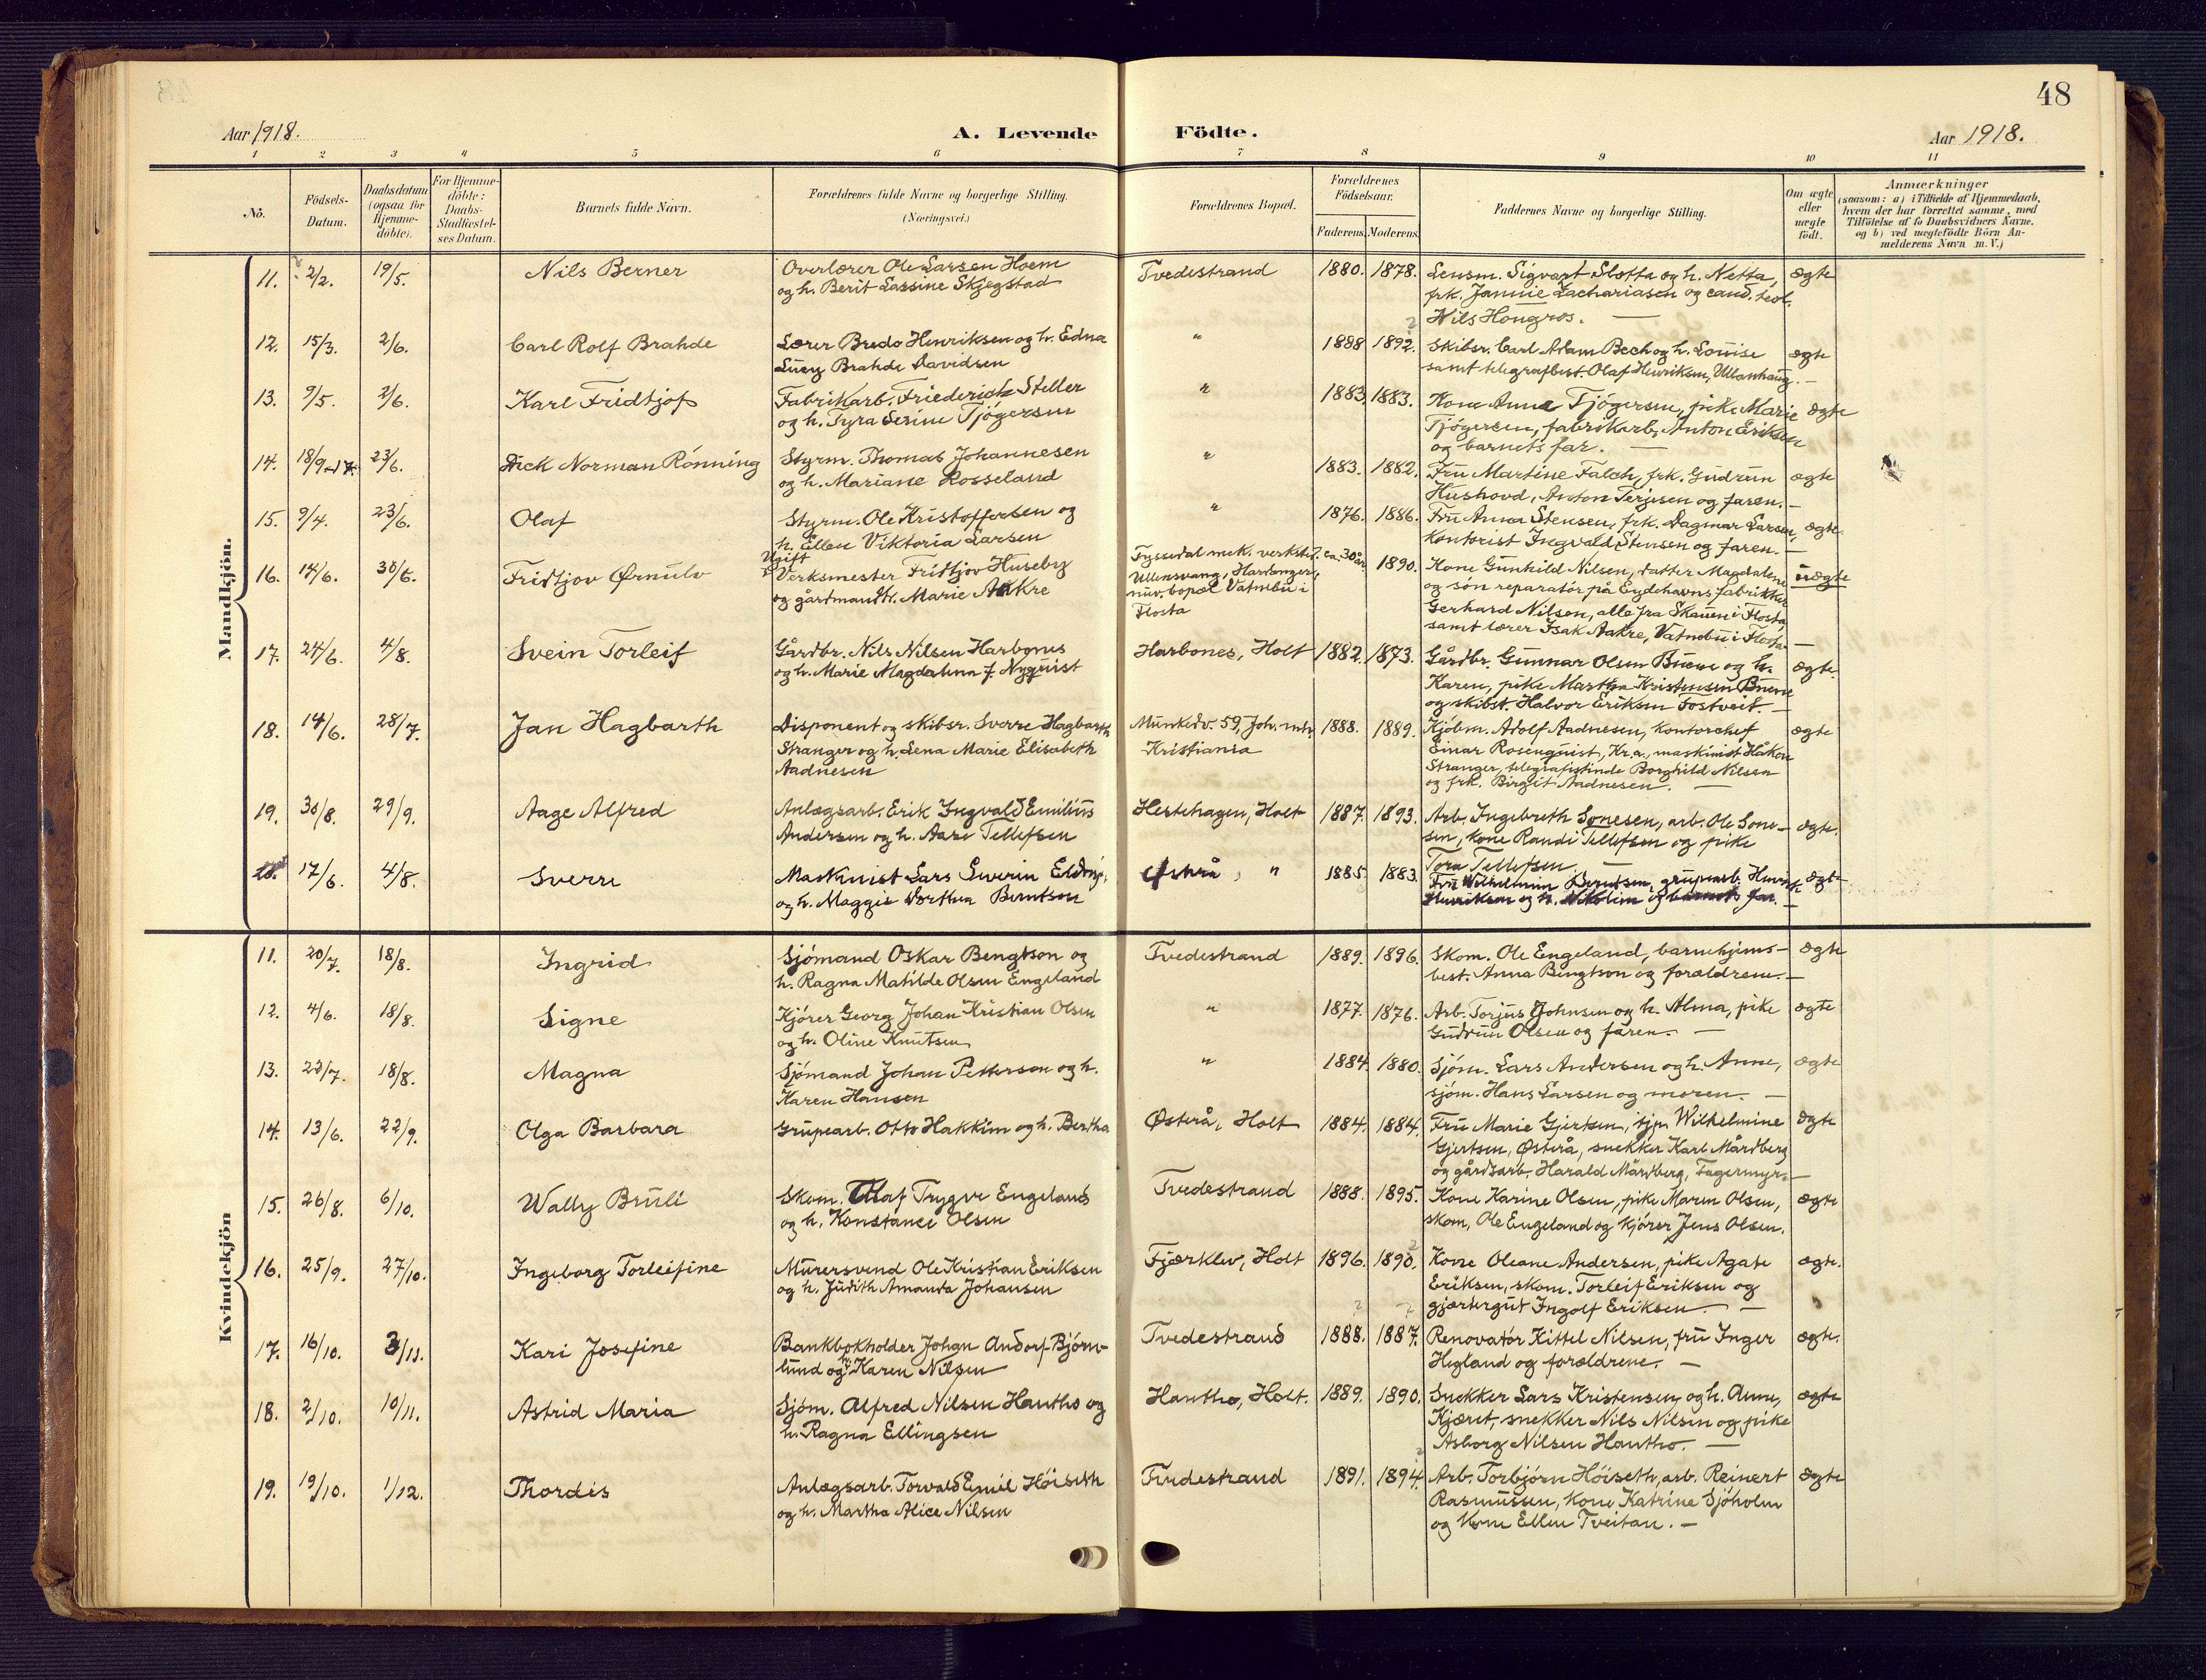 48
Aar 1918.
A. Levende Födte.
Aar 1918.
1 2 3 4 5 6 7 8 9 10 11
No.
Födsels-Datum.
Daabsdatum (ogsaa for Hjemme-döbte).
For Hjemme-döbte: Daabs-Stadfæstel-ses Datum.
Barnets fulde Navn.
Forældrenes fulde Navne og borgerlige Stilling. (Næringsvei.)
Forældrenes Bopæl.
Forældrenes Födselsaar.
Faderens. Moderens.
Faddernes Navne og borgerlige Stilling.
Om ægte eller uægte født.
Anmærkninger
(saasom: a) i Tilfælde af Hjemmedaab, hvem der har forrettet samme, med Tilföielse af to Daabsvidners Navne. og b) ved uægtefödte Börn An-melderens Navn m. V.)
Mandkjön.
11. 2/2. 19/5. Nils Berner
Overlærer Ole Larsen Hoem
og h. Berit Lassine Skjegstad
Tvedestrand 1880. 1878.
Lensm. Sigvart Slotta og h. Netta,
frk. Jannie Zachariasen og cand. teol.
Nils Hougros. —
ægte
12. 15/3. 2/6. Carl Rolf Brahde
Lærer Bredo Henriksen og h. Edna
Lucy Brahde Davidsen
" 1888 1892.
Skibsr. Carl Adam Bech og h. Louise
samt telegrafbest. Olaf Henriksen, Ullanhaug. —
ægte
13. 9/5. 2/6. Karl Fridtjof
Fabrikarb. Friederich Steller
og h. Tyra Serine Tjögersen
" 1883. 1883.
Kone Anna Tjögersen, pike Marie
Tjögersen, fabrikarb. Anton Eriksen
og barnets far. —
ægte
14. 18/9-17. 23/6. Dick Norman Rönning
Styrm. Thomas Johannesen
og h. Mariane Rosseland
" 1883. 1882.
Fru Martine Falch, frk. Gudrun
Hushovd, Anton Terjesen og faren. —
ægte
15. 9/4. 23/6. Olaf
Styrm. Ole Kristoffersen og
h. Ellen Viktoria Larsen
" 1876. 1886.
Fru Anna Stensen, frk. Dagmar Larsen,
kontorist Ingvald Stensen og faren. —
ægte
16. 14/6. 30/6. Fridtjov Ørnulv
Ugift
Verksmester Fridtjov Huseby
og gårdmandsd. Marie Aakre
Tyssedal mek. verksted,
Ullensvang, Hardanger,
nuv. bopæl Vatnebu i
Flosta
ca. 30 år 1890.
Kone Gunhild Nilsen, datter Magdalene
og sön reparatör på Eydehavns fabrikker
Gerhard Nilsen, alle fra Skauen i Flosta,
samt lærer Isak Aakre, Vatnebu i Flosta —
uægte
17. 24/6. 4/8. Svein Torleif
Gårdbr. Nils Nilsen Harbones
og h. Marie Magdalena f. Nyquist
Harbones, Holt 1882. 1873.
Gårdbr. Gunnar Olsen Buene og h.
Karen, pike Martha Kristensen Buene
og skibst. Halvor Eriksen Fostveit. —
ægte.
18. 14/6. 28/7. Jan Hagbarth
Disponent og skibsr. Sverre Hagbarth
Stranger og h. Lena Marie Elisabeth
Aadnesen
Munkedv. 59, Joh. mh.
Kristiania
1888. 1889.
Kjöbm. Adolf Aadnesen, kontorchef
Einar Rosenquist, Kr.a., maskinist Håkon
Stranger, telegrafistinde Borghild Nilsen
og frk. Birgit Aadnesen. —
ægte
19. 30/8. 29/9. Aage Alfred
Anlægsarb. Erik Ingvald Emilius
Andersen og h. Aase Tellefsen
Hestehagen, Holt 1887. 1893.
Arb. Ingebreth Sonesen, arb. Ole Sone-
sen, kone Randi Tellefsen og pike
Tora Tellefsen —
ægte.
17/6. 4/8. Sverre
Maskinist Lars Severin
og h. Maggie Dorthea Berntsen
Østerå, " 1885 1883.
Fru Wilhelmine Berntsen, grupearb. Henrik
Henriksen og h. Nikoline og barnets far. —
ægte
Kvindekjön
11. 20/7. 18/8. Ingrid
Sjömand Oskar Bengtson og
h. Ragna Matilde Olsen Engeland
Tvedestrand 1889. 1896.
Skom. Ole Engeland, barnehjems-
best. Anna Bengtson og forældrene. —
ægte
12. 4/6. 18/8. Signe
Kjörer Georg Johan Kristian Olsen
og h. Oline Knutsen
" 1877. 1876.
Arb. Torjus Johnsen og h. Alma, pike
Gudrun Olsen og faren. —
ægte
13. 22/7. 18/8. Magna
Sjömand Johan Petterson og h.
Karen Hansen
" 1884. 1880.
Sjöm. Lars Andersen og h. Anne,
sjöm. Hans Larsen og moren. —
ægte
14. 13/6. 22/9. Olga Barbara
Grupearb. Otto Hakkim og h. Bertha
Østerå, Holt 1884. 1884.
Fru Marie Gjertsen, tjp. Wilhelmine
Gjertsen, Østerå, snekker Karl Mårdberg
og gårdsarb. Harald Mårdberg, Fagermyr. —
ægte
15. 26/8. 6/10. Wally Bruli
Skom. Olaf Trygve Engeland
og h. Konstance Olsen
Tvedestrand 1888. 1895.
Kone Karine Olsen, pike Maren Olsen,
skom. Ole Engeland og kjörer Jens Olsen.
ægte
16. 25/9. 27/10. Ingeborg Torleifine
Murersvend Ole Kristian Eriksen
og h. Judith Amanda Johansen
Fjærklev, Holt 1896. 1890.
Kone Oleane Andersen, pike Agate
Eriksen, skom. Torleif Eriksen og
gjætergut Ingolf Eriksen. —
ægte.
17. 16/10. 3/11. Kari Josefine
Bankbokholder Johan Andorf Björn-
lund og h. Karen Nilsen
Tvedestrand 1888. 1887.
Renovatör Kittel Nilsen, fru Inger
Hegland og forældrene. —
ægte.
18. 2/10. 10/11. Astrid Maria
Sjöm. Alfred Nilsen Hantho og
h. Ragna Ellingsen
Hantho, Holt. 1889. 1890.
Snekker Lars Kristensen og h. Anne,
Kjæret, snekker Nils Nilsen og pike
Asborg Nilsen Hantho. —
ægte
19. 19/10. 1/12. Thordis
Anlægsarb. Torvald Emil Höiseth
og h. Martha Alice Nilsen
Tvedestrand 1891. 1894.
Arb. Torbjörn Höiseth, arb. Reinert
Rasmussen, kone Katrine Sjöholm
og kone Ellen Tveitan. —
ægte